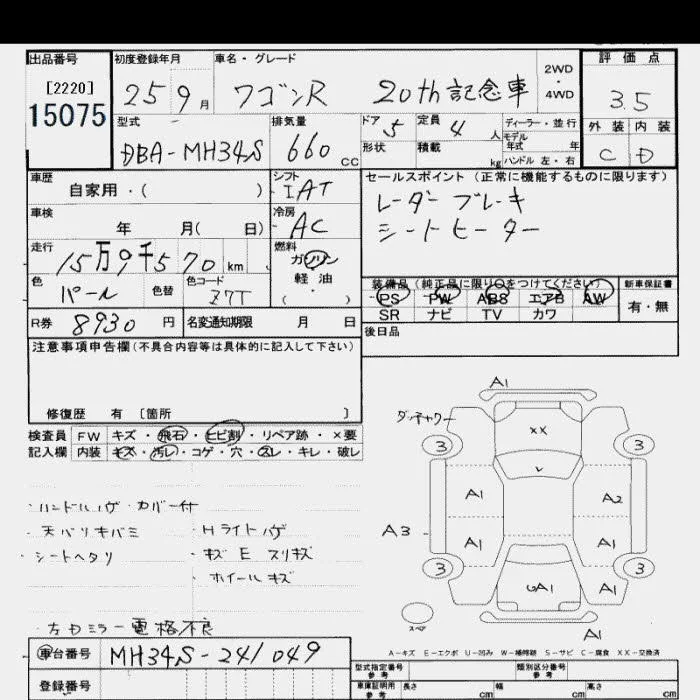 出品番号
[2220]
15075
初度登録年月
25 9 月
車名・グレード
ワゴンR 20th記念車
2WD
・
4WD
評価点
3.5
外装 内装
C D
型式
DBA-MH34S
排気量
660 CC
ドア 5
形状
定員 4 人
積載 kg
ディーラー・並行
モデル
年式 年
ハンドル 左・右
車歴
自家用・( )
シフト
IAT
車検
年 月( 日)
冷房
AC
走行
15万9千570 km
燃料
ガソリン
軽油
・
( )
色
パール
色替
色コード
Z7T
R券 8930 円
名変通知期限 月 日
セールスポイント (正常に機能するものに限ります)
レーダーブレーキ
シートヒーター
装備品 (純正品に限り○をつけてください)
PS PW ABS エアB AW
SR ナビ TV カワ
新車保証書
有・無
後日品
注意事項申告欄(不具合内容等は具体的に記入して下さい)
修復歴 有 〔箇所 〕
検査員 FW キズ・飛石・ヒビ割・リペア跡・×要
記入欄 内装 キズ・汚レ・コゲ・穴・スレ・キレ・破レ
・ハンドルハゲ カバー付
・天バリキバミ
・シートヘタリ
・Hライトハゲ
・キズ E スリキズ
・ホイールキズ
・左ドミラー電格不良
A1
ダッチャワー
XX
3
3
A1
A2
A3
A1
A1
3
3
A1
A1
スペア
A1
A-キズ E-エクボ U-凹み W-補修跡 S-サビ C-腐食 XX-交換済
車台番号
MH34S-241049
登録番号
型式指定番号
参考
類別区分番号
参考
車庫証明用
参考
長さ cm
幅 cm
高さ cm